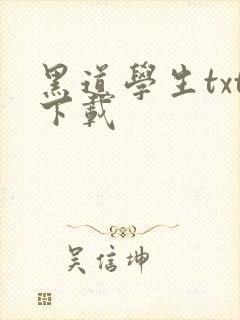 黑道學生txt
下載
吴信坤